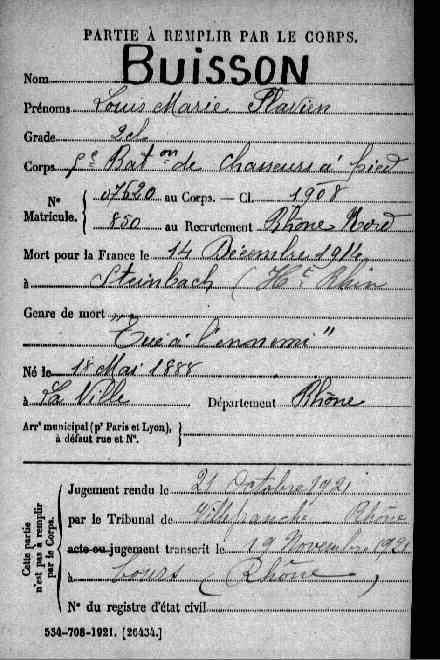 PARTIE À REMPLIR PAR LE CORPS.
Nom BUISSON
Prénoms Louis Marie Flavien
Grade 2cl
Corps 5e Baton de Chasseurs à pied
Nº Matricule. { 07620 au Corps. — Cl. 1908
850 au Recrutement Rhône Nord
Mort pour la France le 14 Décembre 1914
à Steinbach (Ht Rhin
Genre de mort
"Tué à l'ennemi"
Né le 18 Mai 1888
à La Ville Département Rhône
Arrt municipal (pr Paris et Lyon), à défaut rue et Nº. }
Cette partie n'est pas à remplir par le Corps.
Jugement rendu le 21 Octobre 1921
par le Tribunal de Villefranche Rhône
acte ou jugement transcrit le 19 Novembre 1921
à Cours (Rhône)
Nº du registre d'état civil
534-708-1921. [26434.]